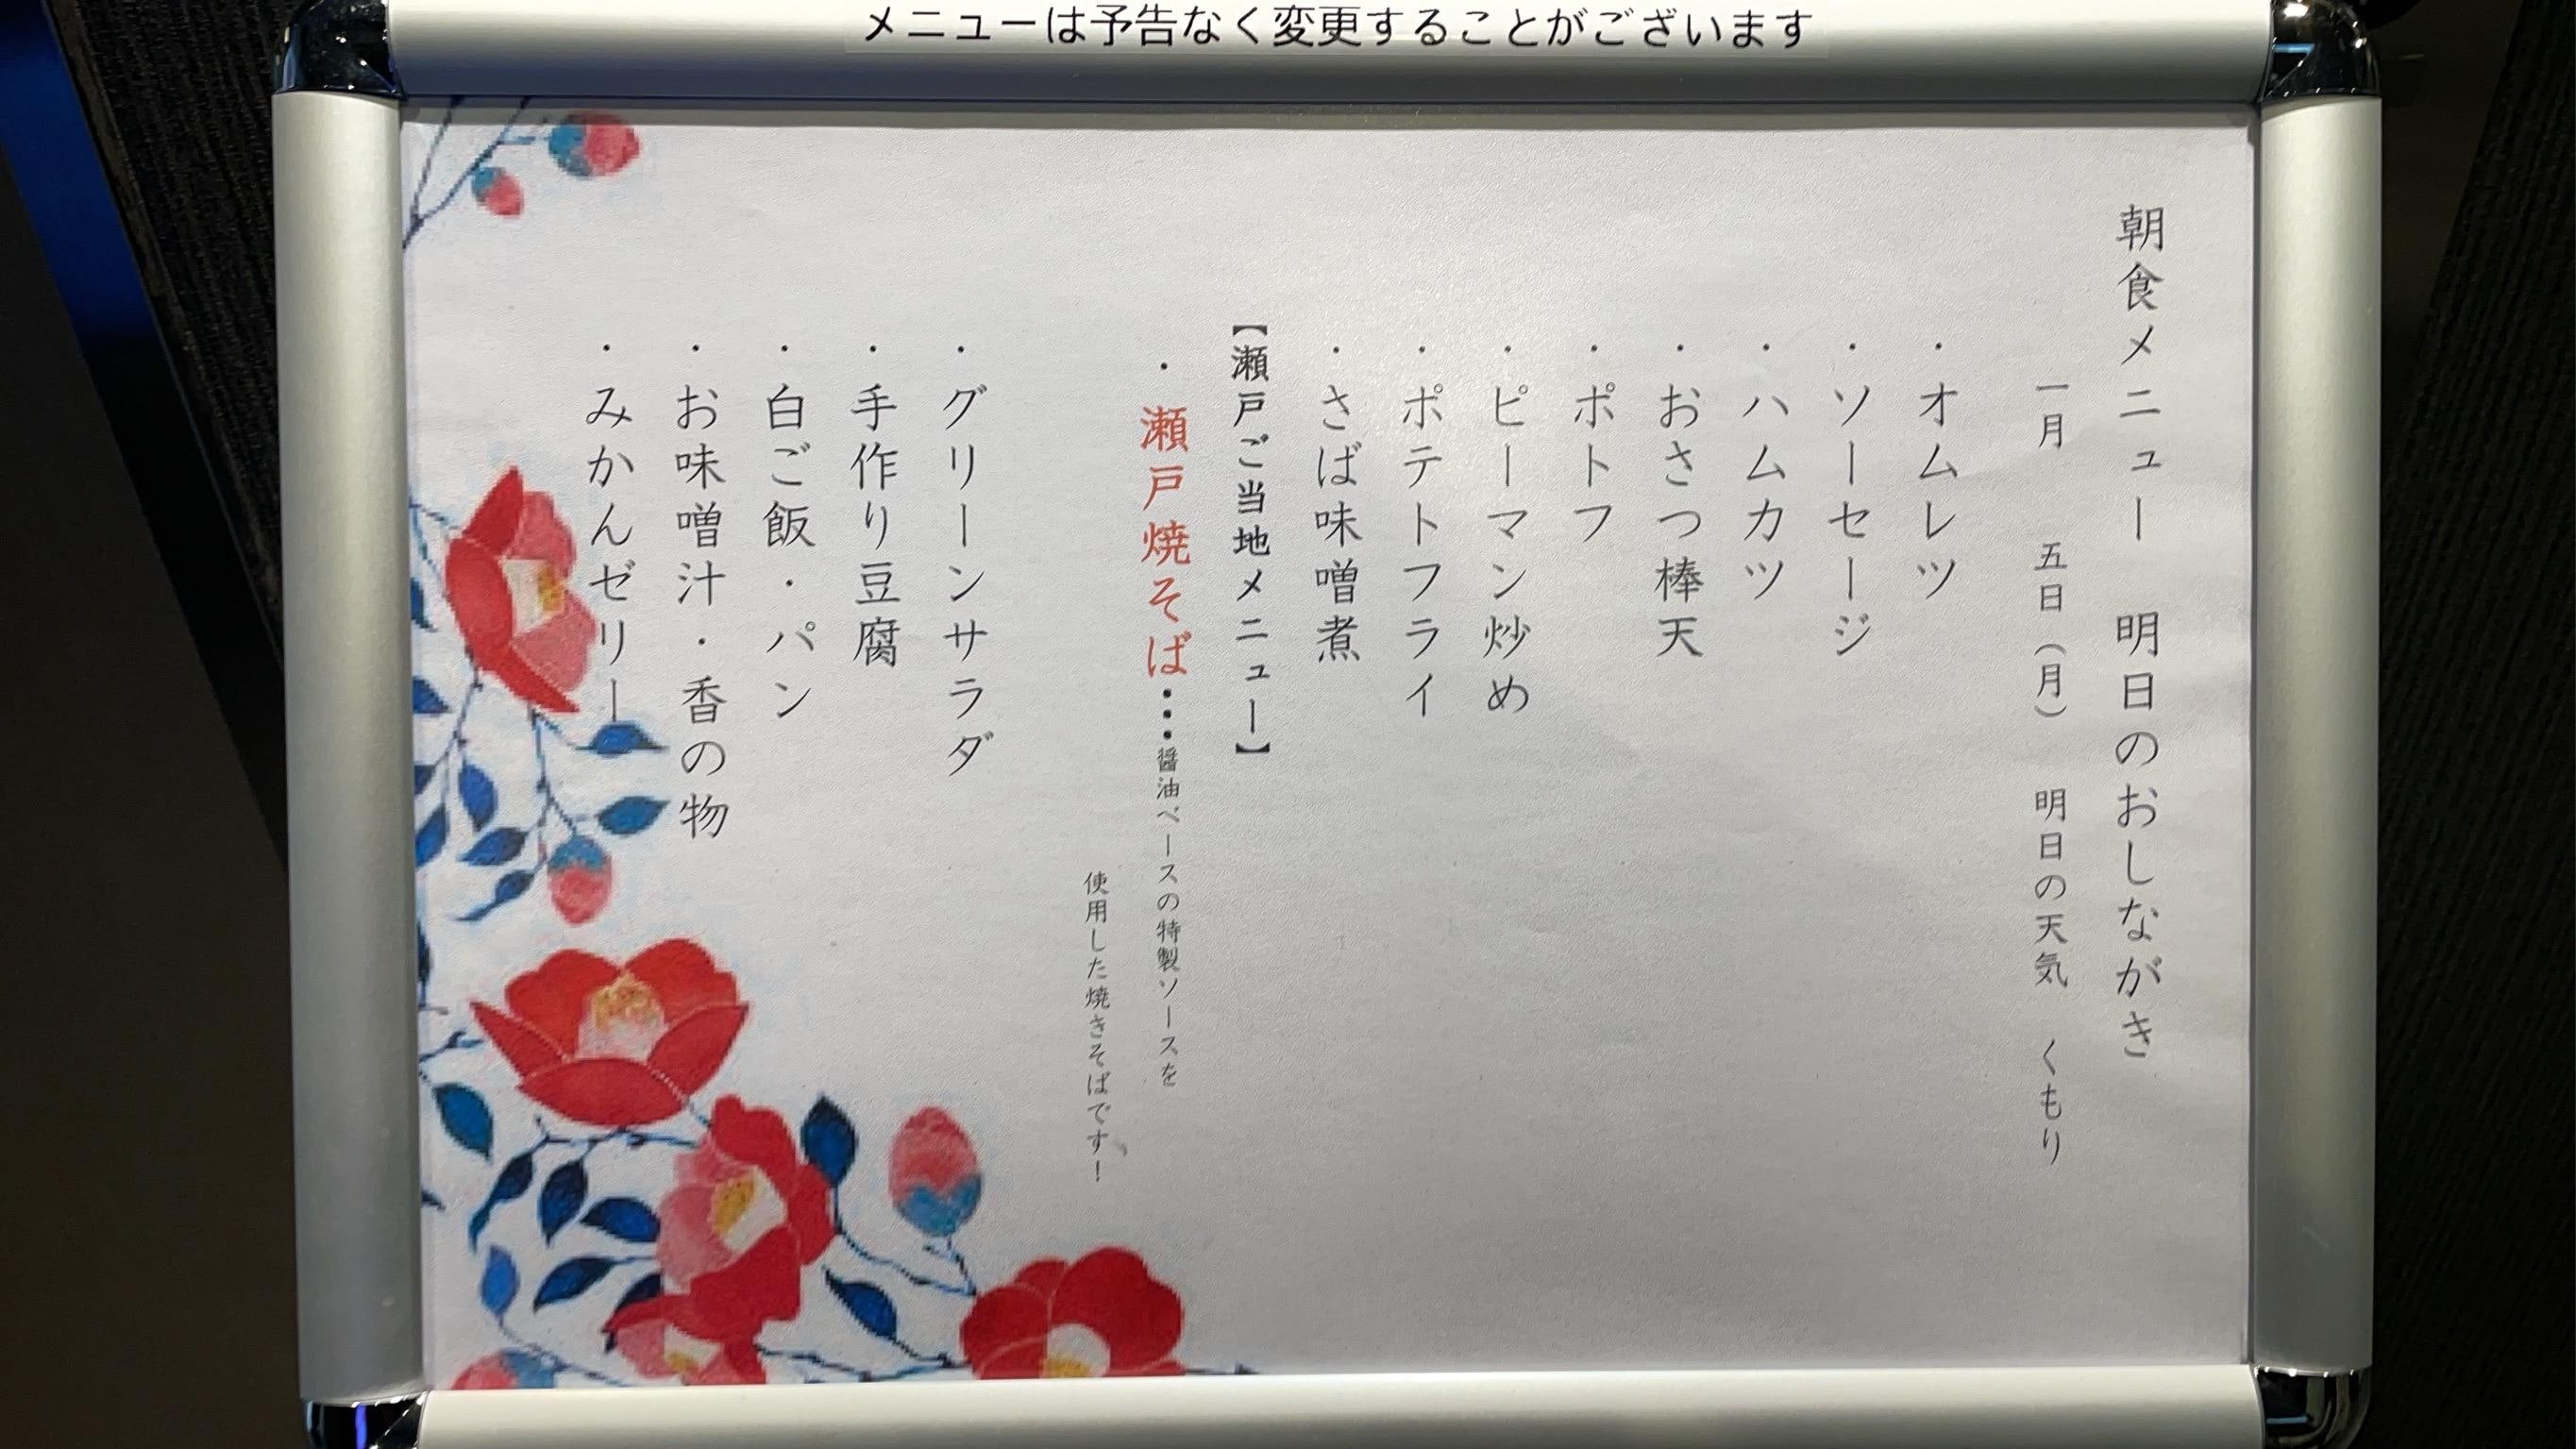 メニューは予告なく変更することがございます
朝食メニュー 明日のおしながき
一月 五日（月） 明日の天気 くもり
・オムレツ
・ソーセージ
・ハムカツ
・おさつ棒天
・ポトフ
・ピーマン炒め
・ポテトフライ
・さば味噌煮
【瀬戸ご当地メニュー】
・瀬戸焼そば・・・醤油ベースの特製ソースを
使用した焼きそばです！
・グリーンサラダ
・手作り豆腐
・白ご飯・パン
・お味噌汁・香の物
・みかんゼリー